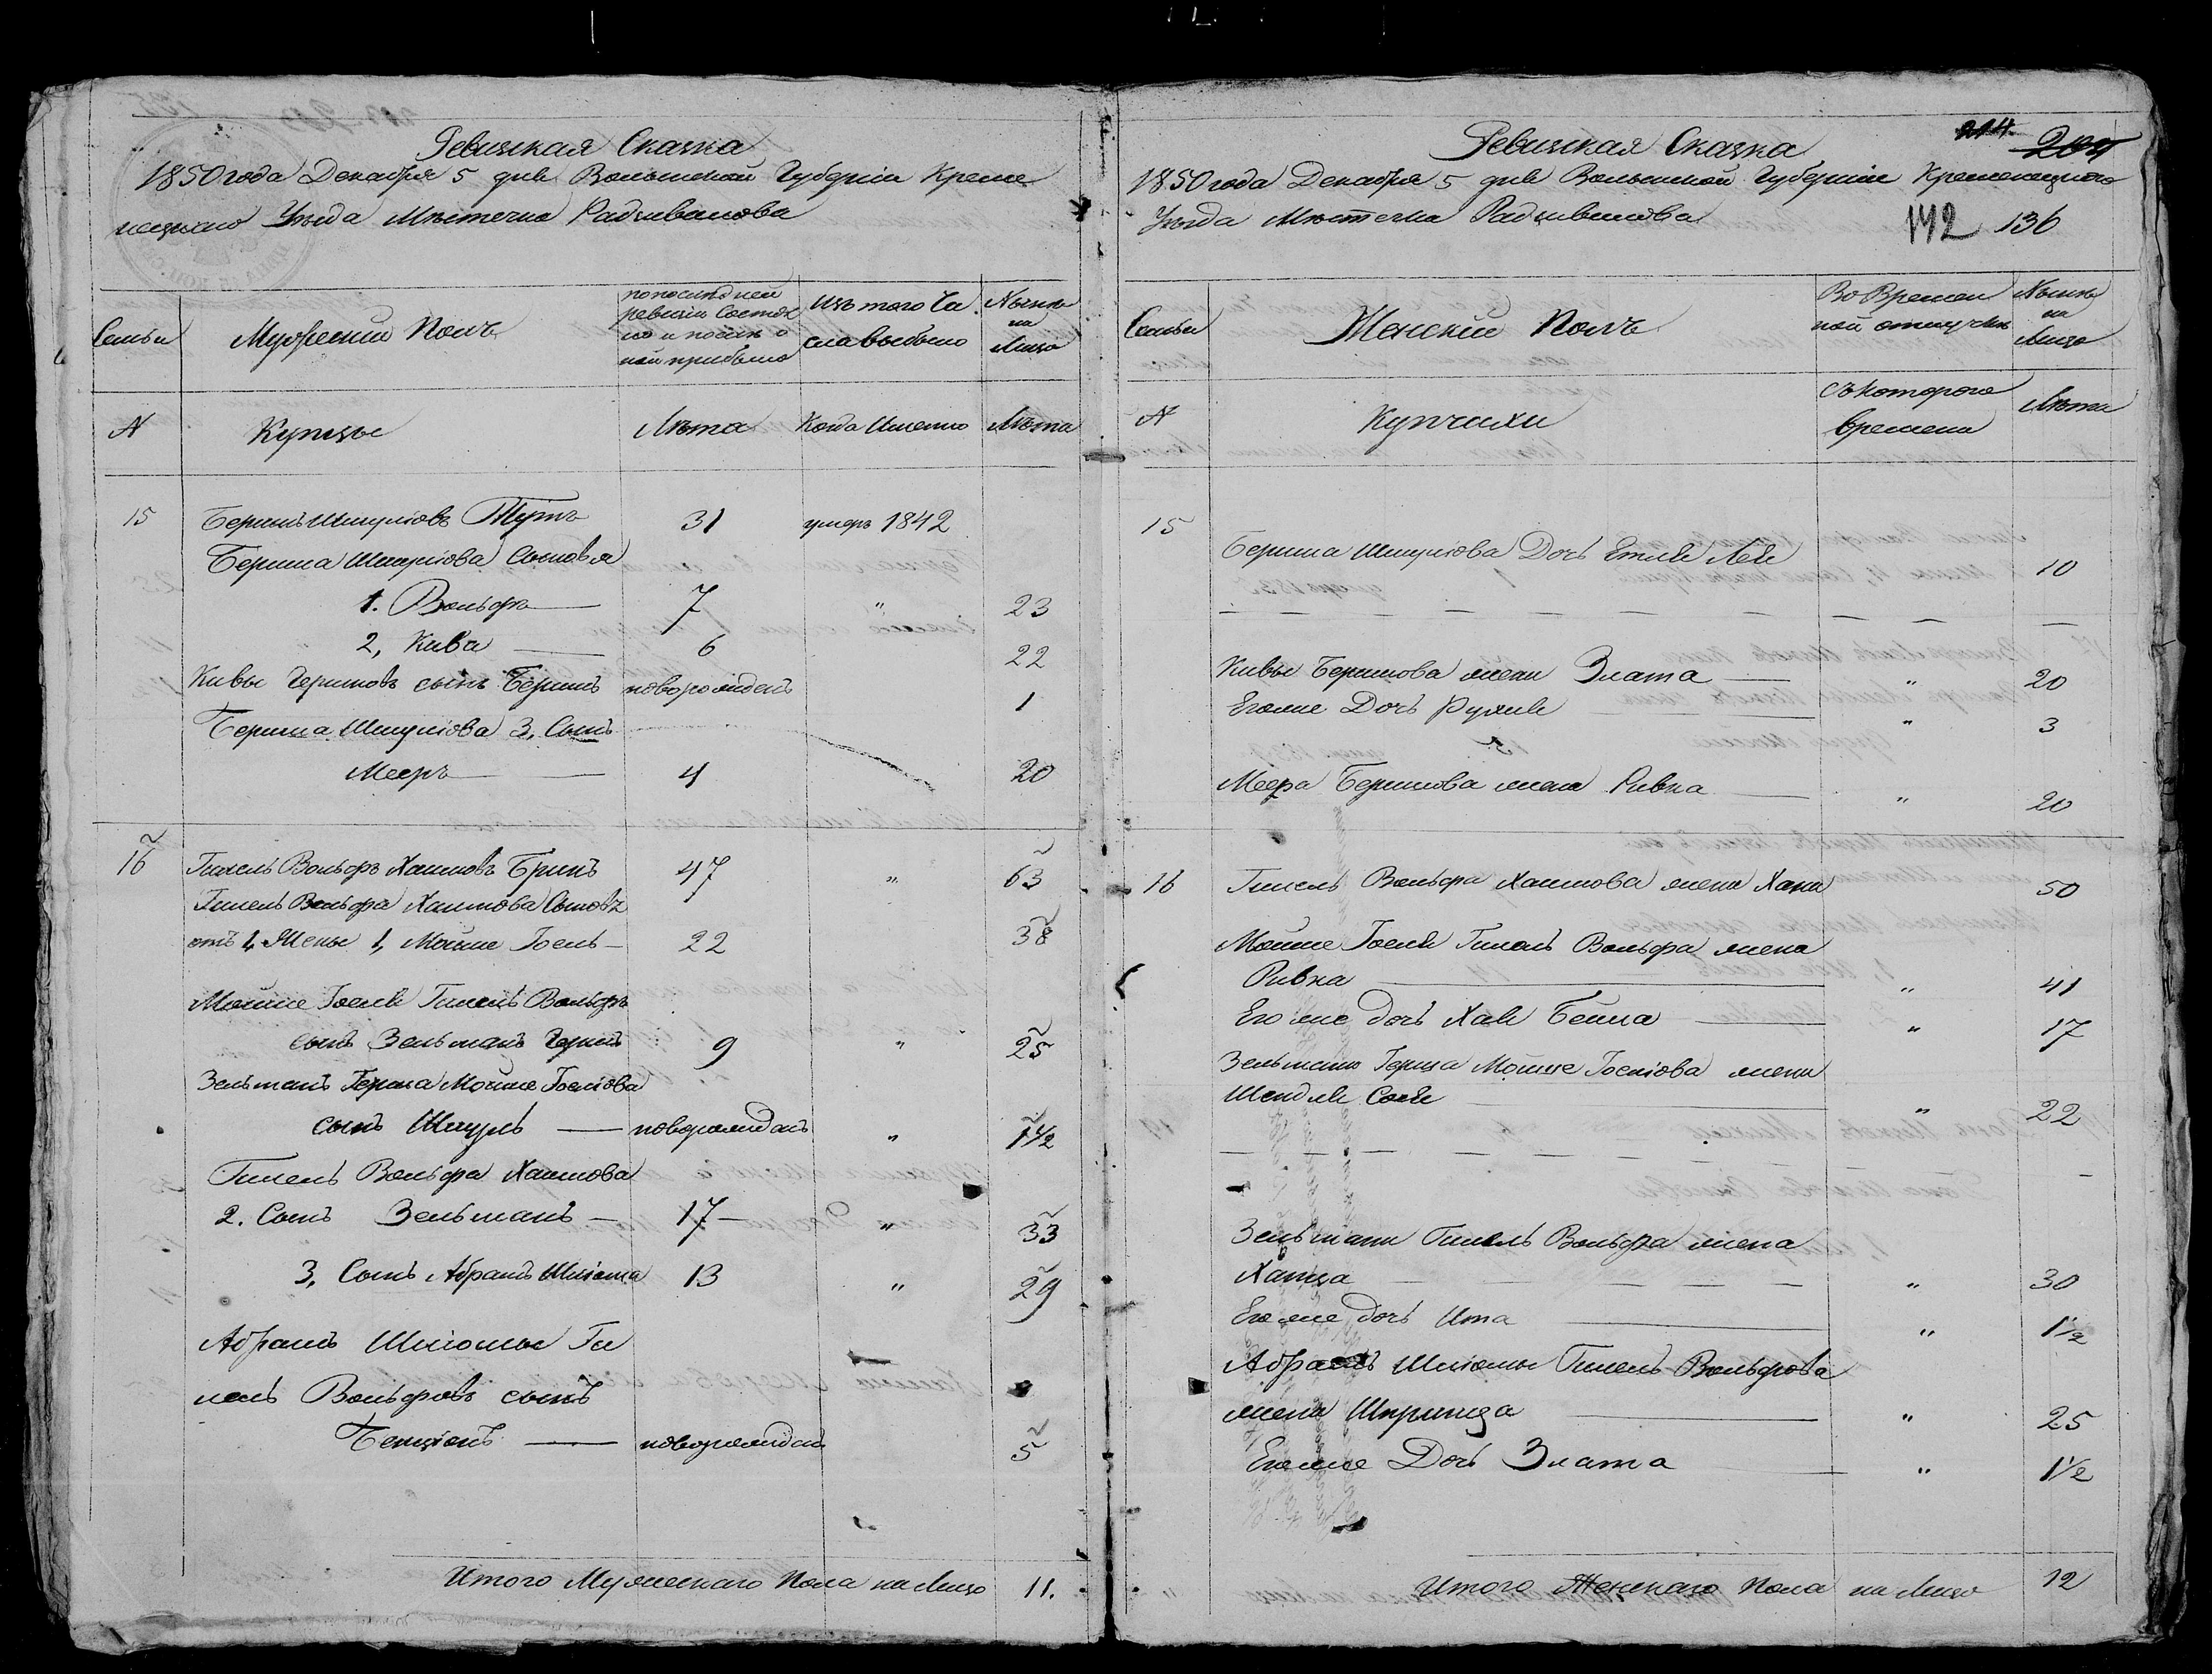 Ревизская Сказка
1850 года Декабря 5 дня Волынской Губернии Креме
нецкаго Уѣзда Мѣстечка Радзивилова
Семьи
Мужескій Полъ
по последней
ревизіи состоя
ло и послѣ о
ной прибыло
Изъ того Чи
сла выбыло
Нынѣ
на
Лицо
N
Купцы
Лѣта
Когда Именно
Лѣта
15 Беришъ Шмуліовъ 31 умеръ 1842
Бериша Шмуліова Сыновья
1. Вольфъ — 7 " 23
2, Кива — 6 22
Кивы Беришовъ сынъ Беришъ новорожденъ 1
Бериша Шмуліова 3, Сынъ
Мееръ — 4 20
16 Гимель Вольфъ Хаимовъ Бринъ 47 " 63
Гимель Вольфа Хаимова Сыновъ
отъ 1, Жены 1, Мойше Госель — 22 38
Мойше Госель Гимель Вольфъ
сынъ Зельманъ Герша 9 " 25
Зельманъ Герша Мойше Госліова
сынъ Шмуль — новорожденъ " 1 1/2
Гимель Вольфа Хаимова
2. Сынъ Зельманъ — 17 — " 33
3, Сынъ Абрамъ Шліома 13 " 29
Абрамъ Шліомы Ги
мель Вольфовъ сынъ
Бенціонъ — новорожденъ 5
Итого Мужескаго Пола на Лицо 11.
214 204
Ревизская Сказка
1850 года Декабря 5 дня Волынской Губерніи Кременецкаго
Уѣзда Мѣстечка Радзивилова
172 136
Семьи
Женскій Полъ
Во Времен
ной отлучкѣ
Нынѣ
на
Лицо
N
Купчихи
Съ котораго
времени
Лѣта
15
Бериша Шмуліова Дочь Етля Лея 10
Кивы Беришова жена Злата — " 20
Его же Дочь Рухля — " 3
Меера Беришова жена Ривка — " 20
16 Гимель Вольфа Хаимова жена Хана 50
Мойше Госеля Гимель Вольфа жена
Ривка — " 41
Его же дочь Хая Бейла — " 17
Зельмана Герша Мойше Госліова жена
Шендля Сося — " 22
Зельмана Гимель Вольфа жена
Хаша — " 30
Его же дочь Ита — " 1 1/2
Абрамъ Шліомы Гимель Вольфова
жена Шпринца — " 25
Его же Дочь Злата — " 1 1/2
Итого Женскаго Пола на Лицо 12